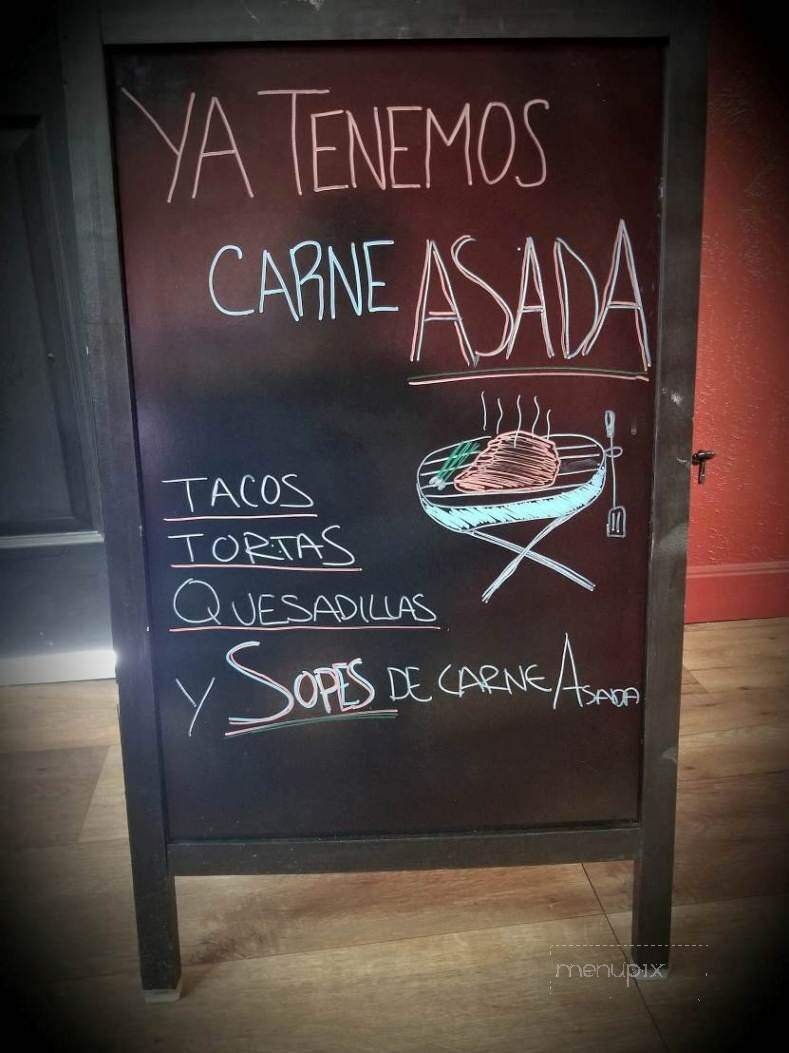 YA TENEMOS
CARNE ASADA
TACOS
TORTAS
QUESADILLAS
Y SOPES DE CARNE ASADA
menupix